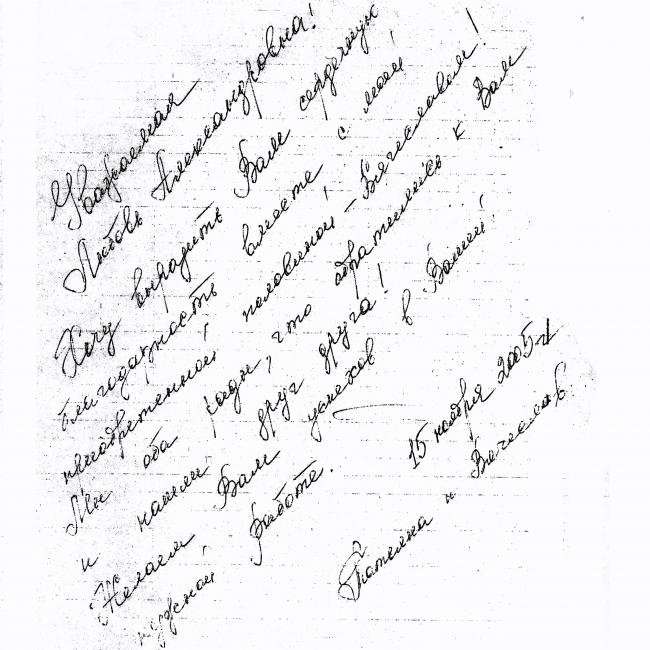 Уважаемая
Любовь Александровна!
Хочу выразить Вам сердечную
благодарность вместе с моей
приобретенной половиной – Вячеславом!
Мы оба рады, что обратились к Вам
и нашли друг друга!
Желаем Вам успехов в Вашей
нужной работе.
15 ноября 2005 г.
Татьяна и Вячеслав.